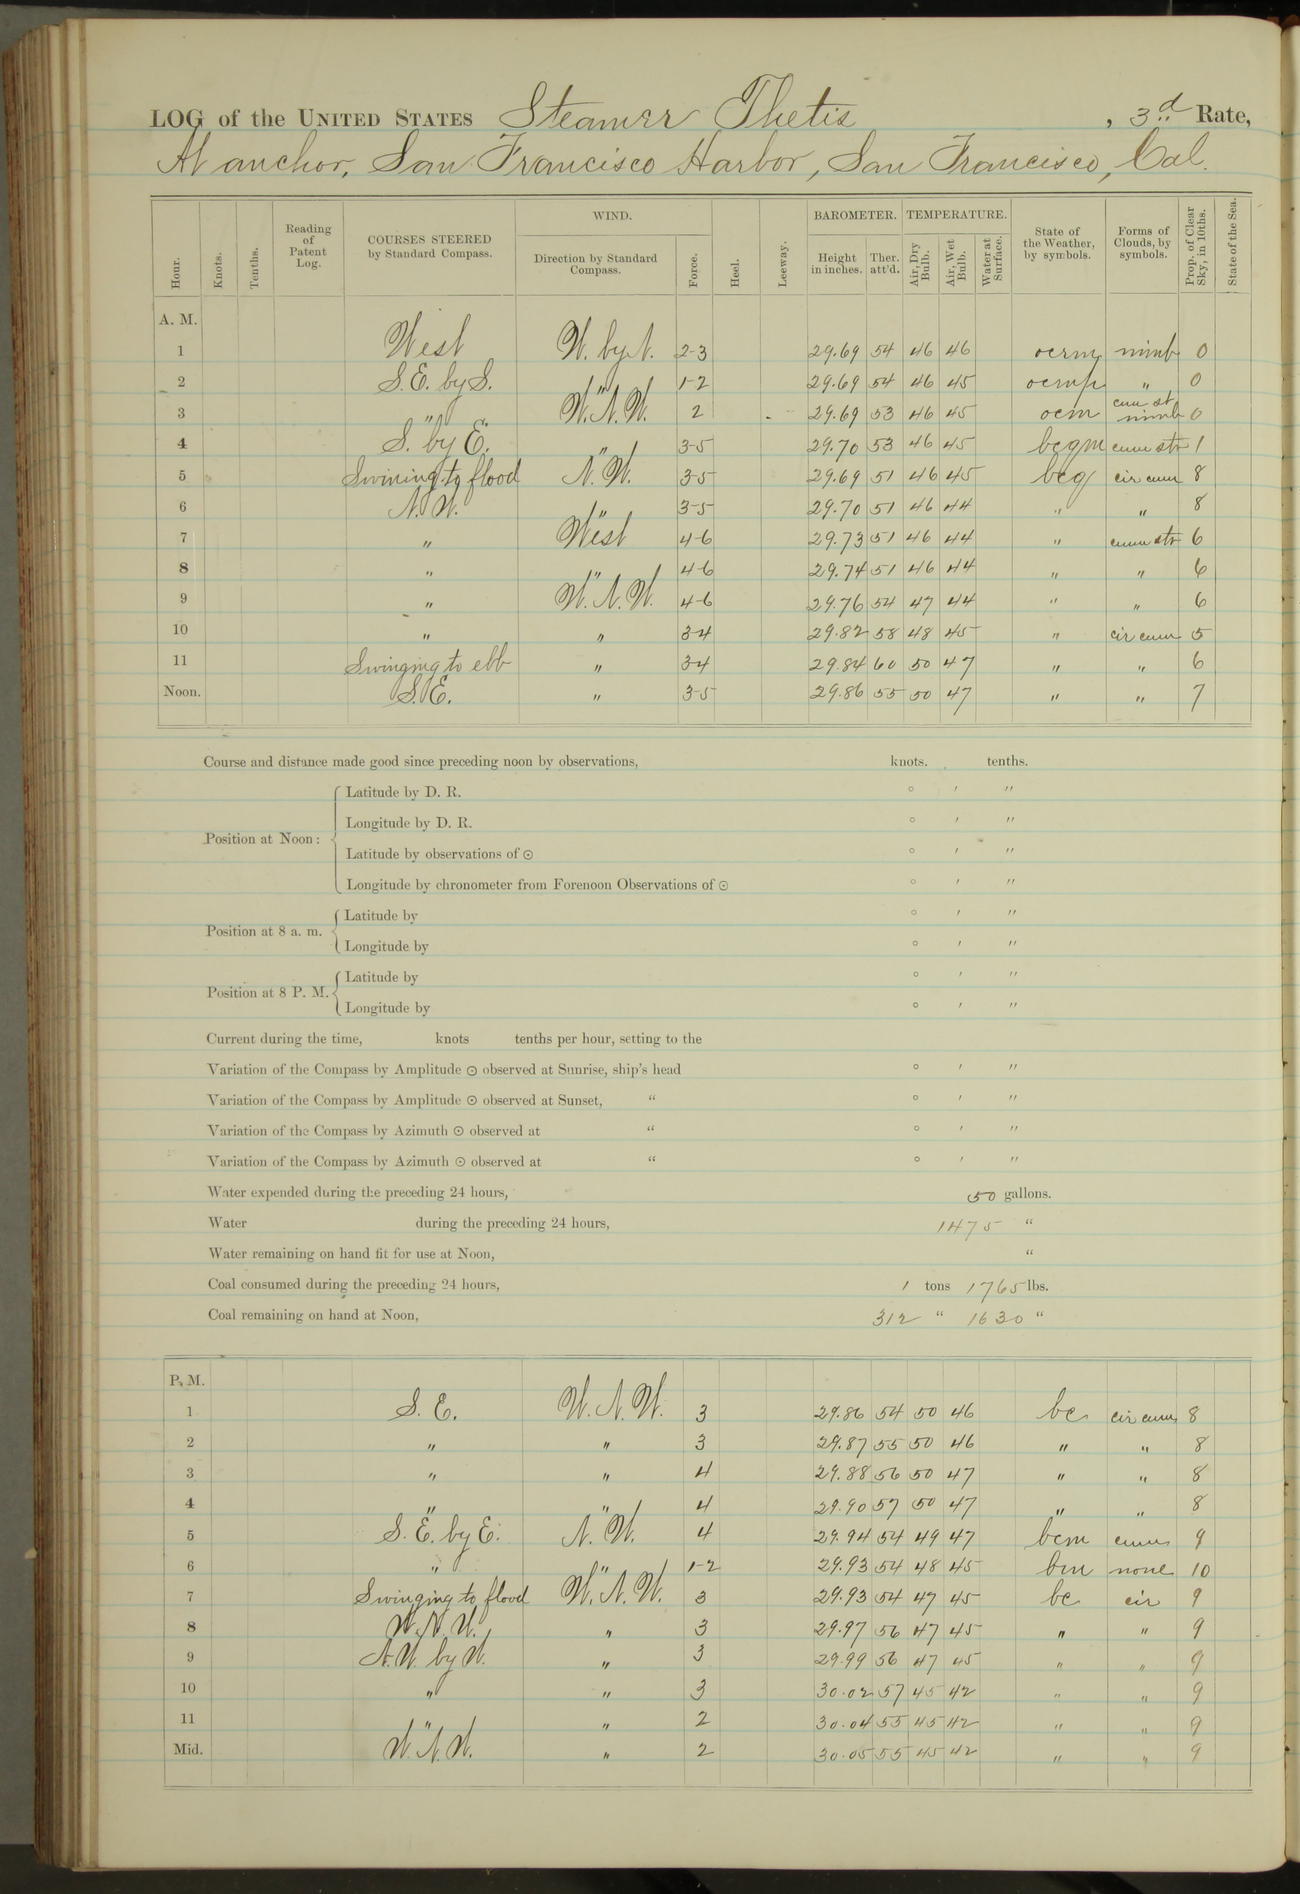 LOG of the UNITED STATES Steamer Thetis, 3d Rate,
At anchor, San Francisco Harbor, San Francisco, Cal.
Hour. Knots. Tenths. Reading of Patent Log. COURSES STEERED by Standard Compass. WIND. Direction by Standard Compass. Force. Heel. Leeway. BAROMETER. Height in inches. Ther. att'd. TEMPERATURE. Air, Dry Bulb. Air, Wet Bulb. Water at Surface. State of the Weather, by symbols. Forms of Clouds, by symbols. Prop. of Clear Sky, in 10ths. State of the Sea.
A. M.
1 West W. by N. 2-3 29.69 54 46 46 ocrm nimb 0
2 S.E. by S. " 1-2 29.69 54 46 45 ocmp " 0
3 " W.N.W. 2 29.69 53 46 45 ocm cum st nimb 0
4 S. by E. " 3-5 29.70 53 46 45 bcqm cum str 1
5 Swining to flood N.W. 3-5 29.69 51 46 45 bcq cir cum 8
6 N.W. " 3-5 29.70 51 46 44 " " 8
7 " West 4-6 29.73 51 46 44 " cum str 6
8 " " 4-6 29.74 51 46 44 " " 6
9 " W.N.W. 4-6 29.76 54 47 44 " " 6
10 " " 3-4 29.82 58 48 45 " cir cum 5
11 Swinging to ebb " 3-4 29.84 60 50 47 " " 6
Noon. S.E. " 3-5 29.86 55 50 47 " " 7
Course and distance made good since preceding noon by observations, knots. tenths.
Position at Noon: Latitude by D. R. ° ′ ″
Longitude by D. R. ° ′ ″
Latitude by observations of ⊙ ° ′ ″
Longitude by chronometer from Forenoon Observations of ⊙ ° ′ ″
Position at 8 a. m. Latitude by ° ′ ″
Longitude by ° ′ ″
Position at 8 P. M. Latitude by ° ′ ″
Longitude by ° ′ ″
Current during the time, knots tenths per hour, setting to the
Variation of the Compass by Amplitude ⊙ observed at Sunrise, ship's head ° ′ ″
Variation of the Compass by Amplitude ⊙ observed at Sunset, " ° ′ ″
Variation of the Compass by Azimuth ⊙ observed at " ° ′ ″
Variation of the Compass by Azimuth ⊙ observed at " ° ′ ″
Water expended during the preceding 24 hours, 50 gallons.
Water during the preceding 24 hours, 1475 "
Water remaining on hand fit for use at Noon, "
Coal consumed during the preceding 24 hours, 1 tons 1765 lbs.
Coal remaining on hand at Noon, 312 " 1630 "
P. M.
1 S. E. W. N. W. 3 29.86 54 50 46 bc cir cum 8
2 " " 3 29.87 55 50 46 " " 8
3 " " 4 29.88 56 50 47 " " 8
4 " " 4 29.90 57 50 47 " " 8
5 S. E. by E. N. W. 4 29.94 54 49 47 bcm cum 9
6 " " 1-2 29.93 54 48 45 bm none 10
7 Swinging to flood W. N. W. 3 29.93 54 47 45 bc cir 9
8 W. N. W. " 3 29.97 56 47 45 " " 9
9 N. W. by W. " 3 29.99 56 47 45 " " 9
10 " " 3 30.02 57 45 42 " " 9
11 " " 2 30.04 55 45 42 " " 9
Mid. W. N. W. " 2 30.05 55 45 42 " " 9